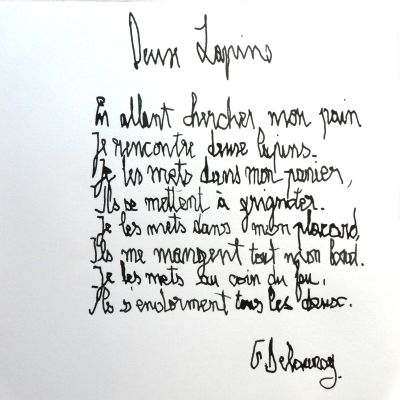 Deux Lapins
En allant chercher mon pain
Je rencontre deux lapins.
Je les mets dans mon panier,
Ils se mettent à grignoter.
Je les mets dans mon placard,
Ils me mangent tout mon lard.
Je les mets au coin du feu,
Ils s'endorment tous les deux.